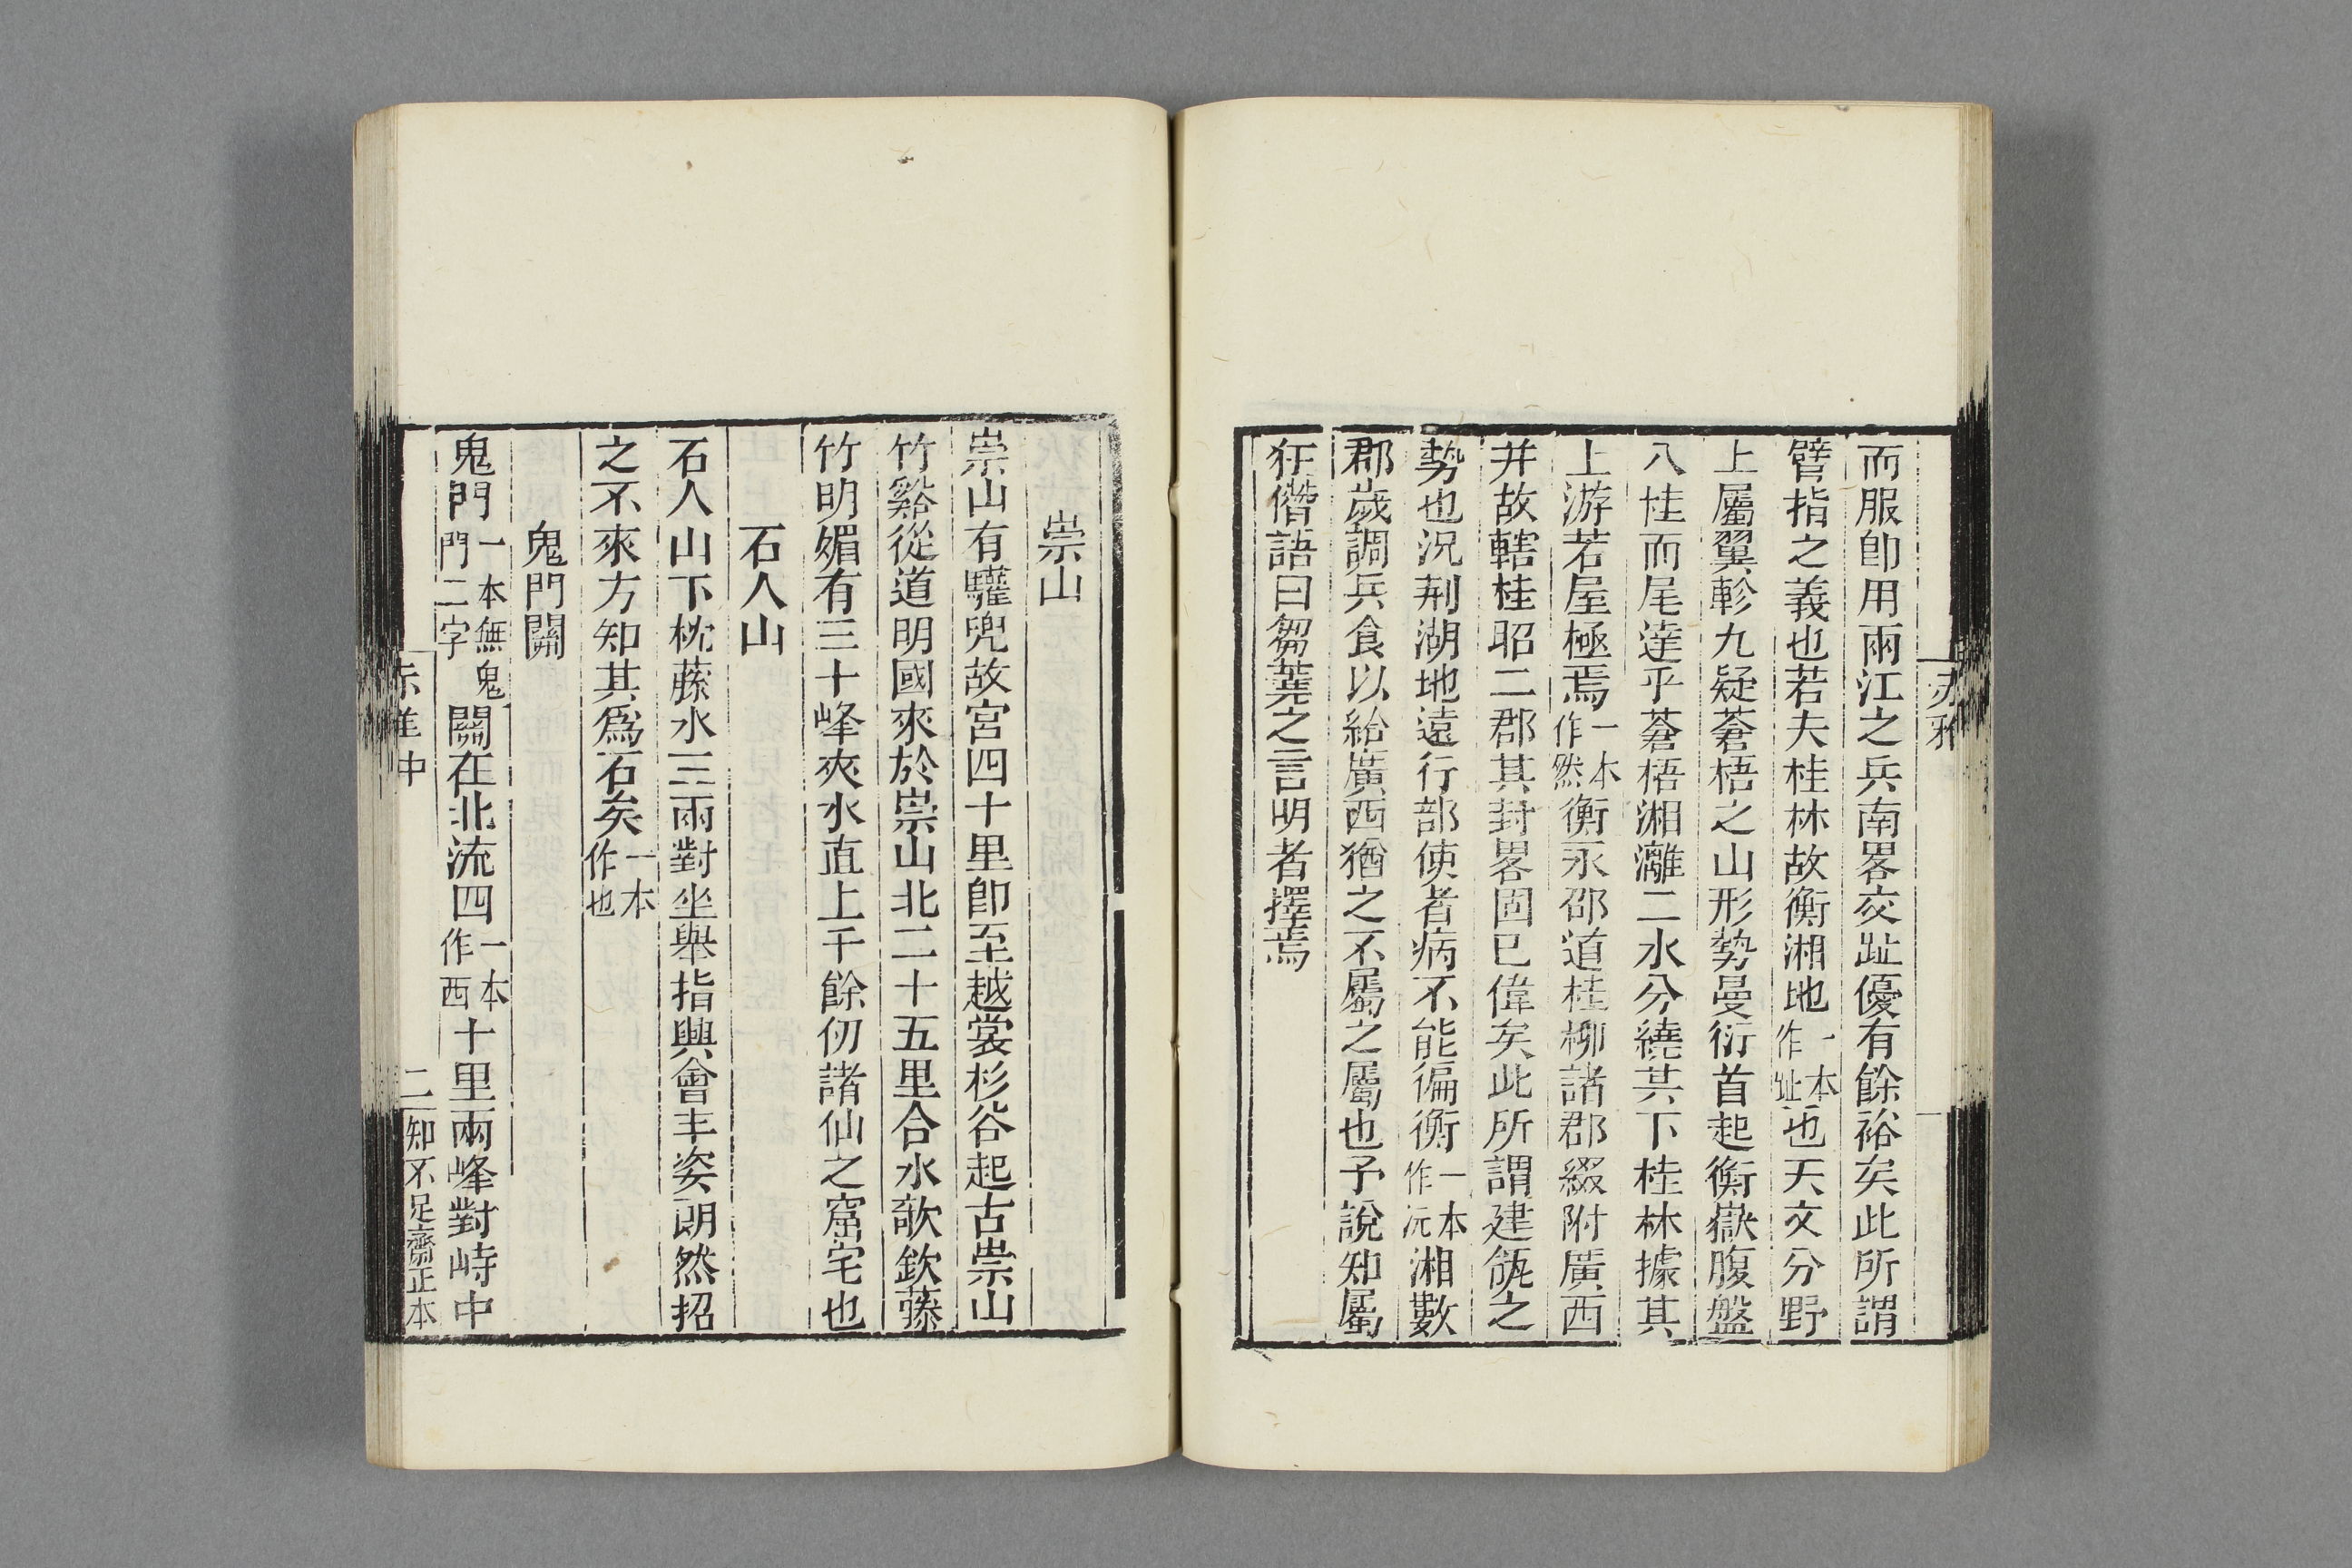 赤雅
而服卽用兩江之兵南畧交趾優有餘裕矣此所謂
臂指之義也若夫桂林故衡湘地一本作趾也天文分野
上屬翼軫九疑蒼梧之山形勢曼衍首起衡嶽腹盤
八桂而尾達乎蒼梧湘灕二水分繞其下桂林據其
上游若屋極焉一本作然衡永邵道桂柳諸郡綴附廣西
井故轄桂昭二郡其封畧固已偉矣此所謂建瓴之
勢也況荆湖地遠行部使者病不能徧衡一本作沅湘數
郡歲調兵食以給廣西猶之不屬之屬也予說知屬
狂僭語曰芻蕘之言明者擇焉
崇山
崇山有驩兜故宮四十里卽至越裳杉谷起古崇山
竹谿從道明國來於崇山北二十五里合水欹欽藤
竹明媚有三十峰夾水直上千餘仞諸仙之窟宅也
石人山
石人山下枕藤水三兩對坐舉指興會丰姿朗然招
之不來方知其爲石矣一本作也
鬼門關
鬼門一本無鬼門二字關在北流四一本作西十里兩峰對峙中
赤雅中 二 知不足齋正本